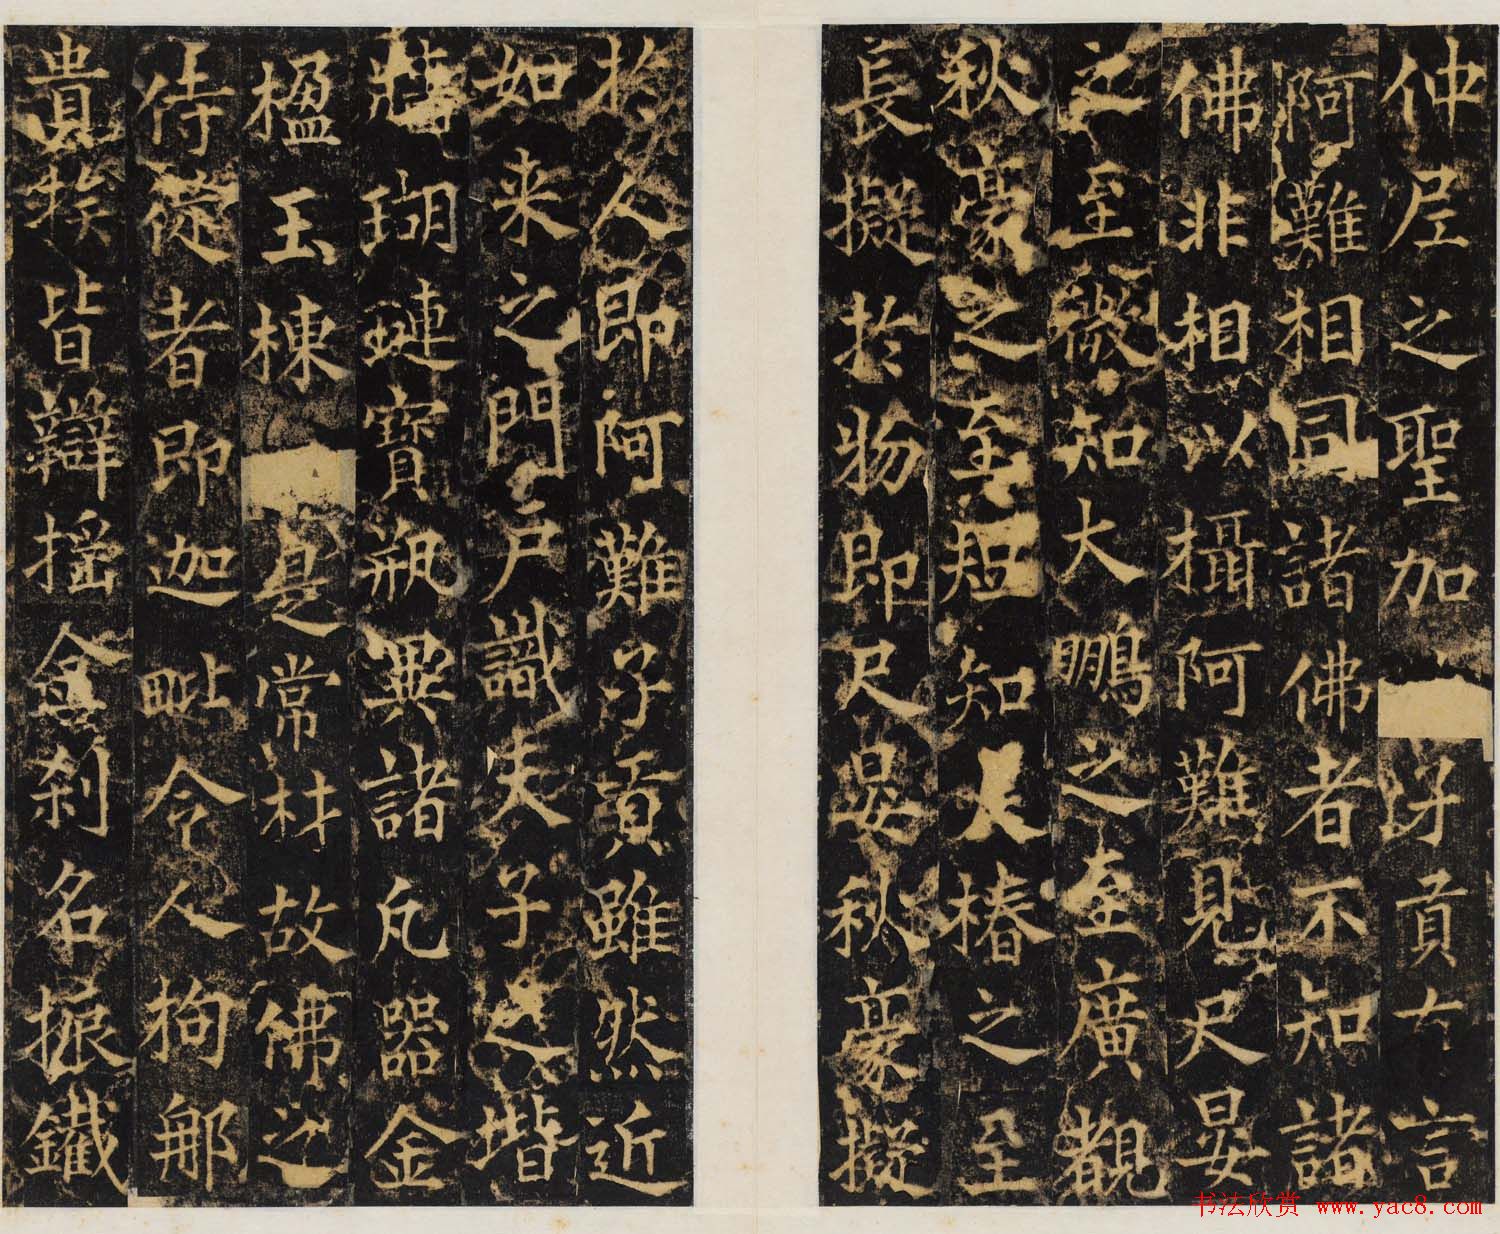 仲尼之聖加子貢六言
阿難相同諸佛者不知諸
佛非相以攝阿難見尺晏
之至微知大鵬之至廣觀
秋豪之至短知大椿之至
長擬於物即尺晏秋豪擬
於人即阿難子貢雖然近
如来之門户識夫子之堦
牆瑚璉寶瓶異諸凡器金
楹玉棟是常材故佛之
侍從者即迦毗令人拘那
貴族皆辯摇金刹名振鐵
书法欣赏 www.yac8.com